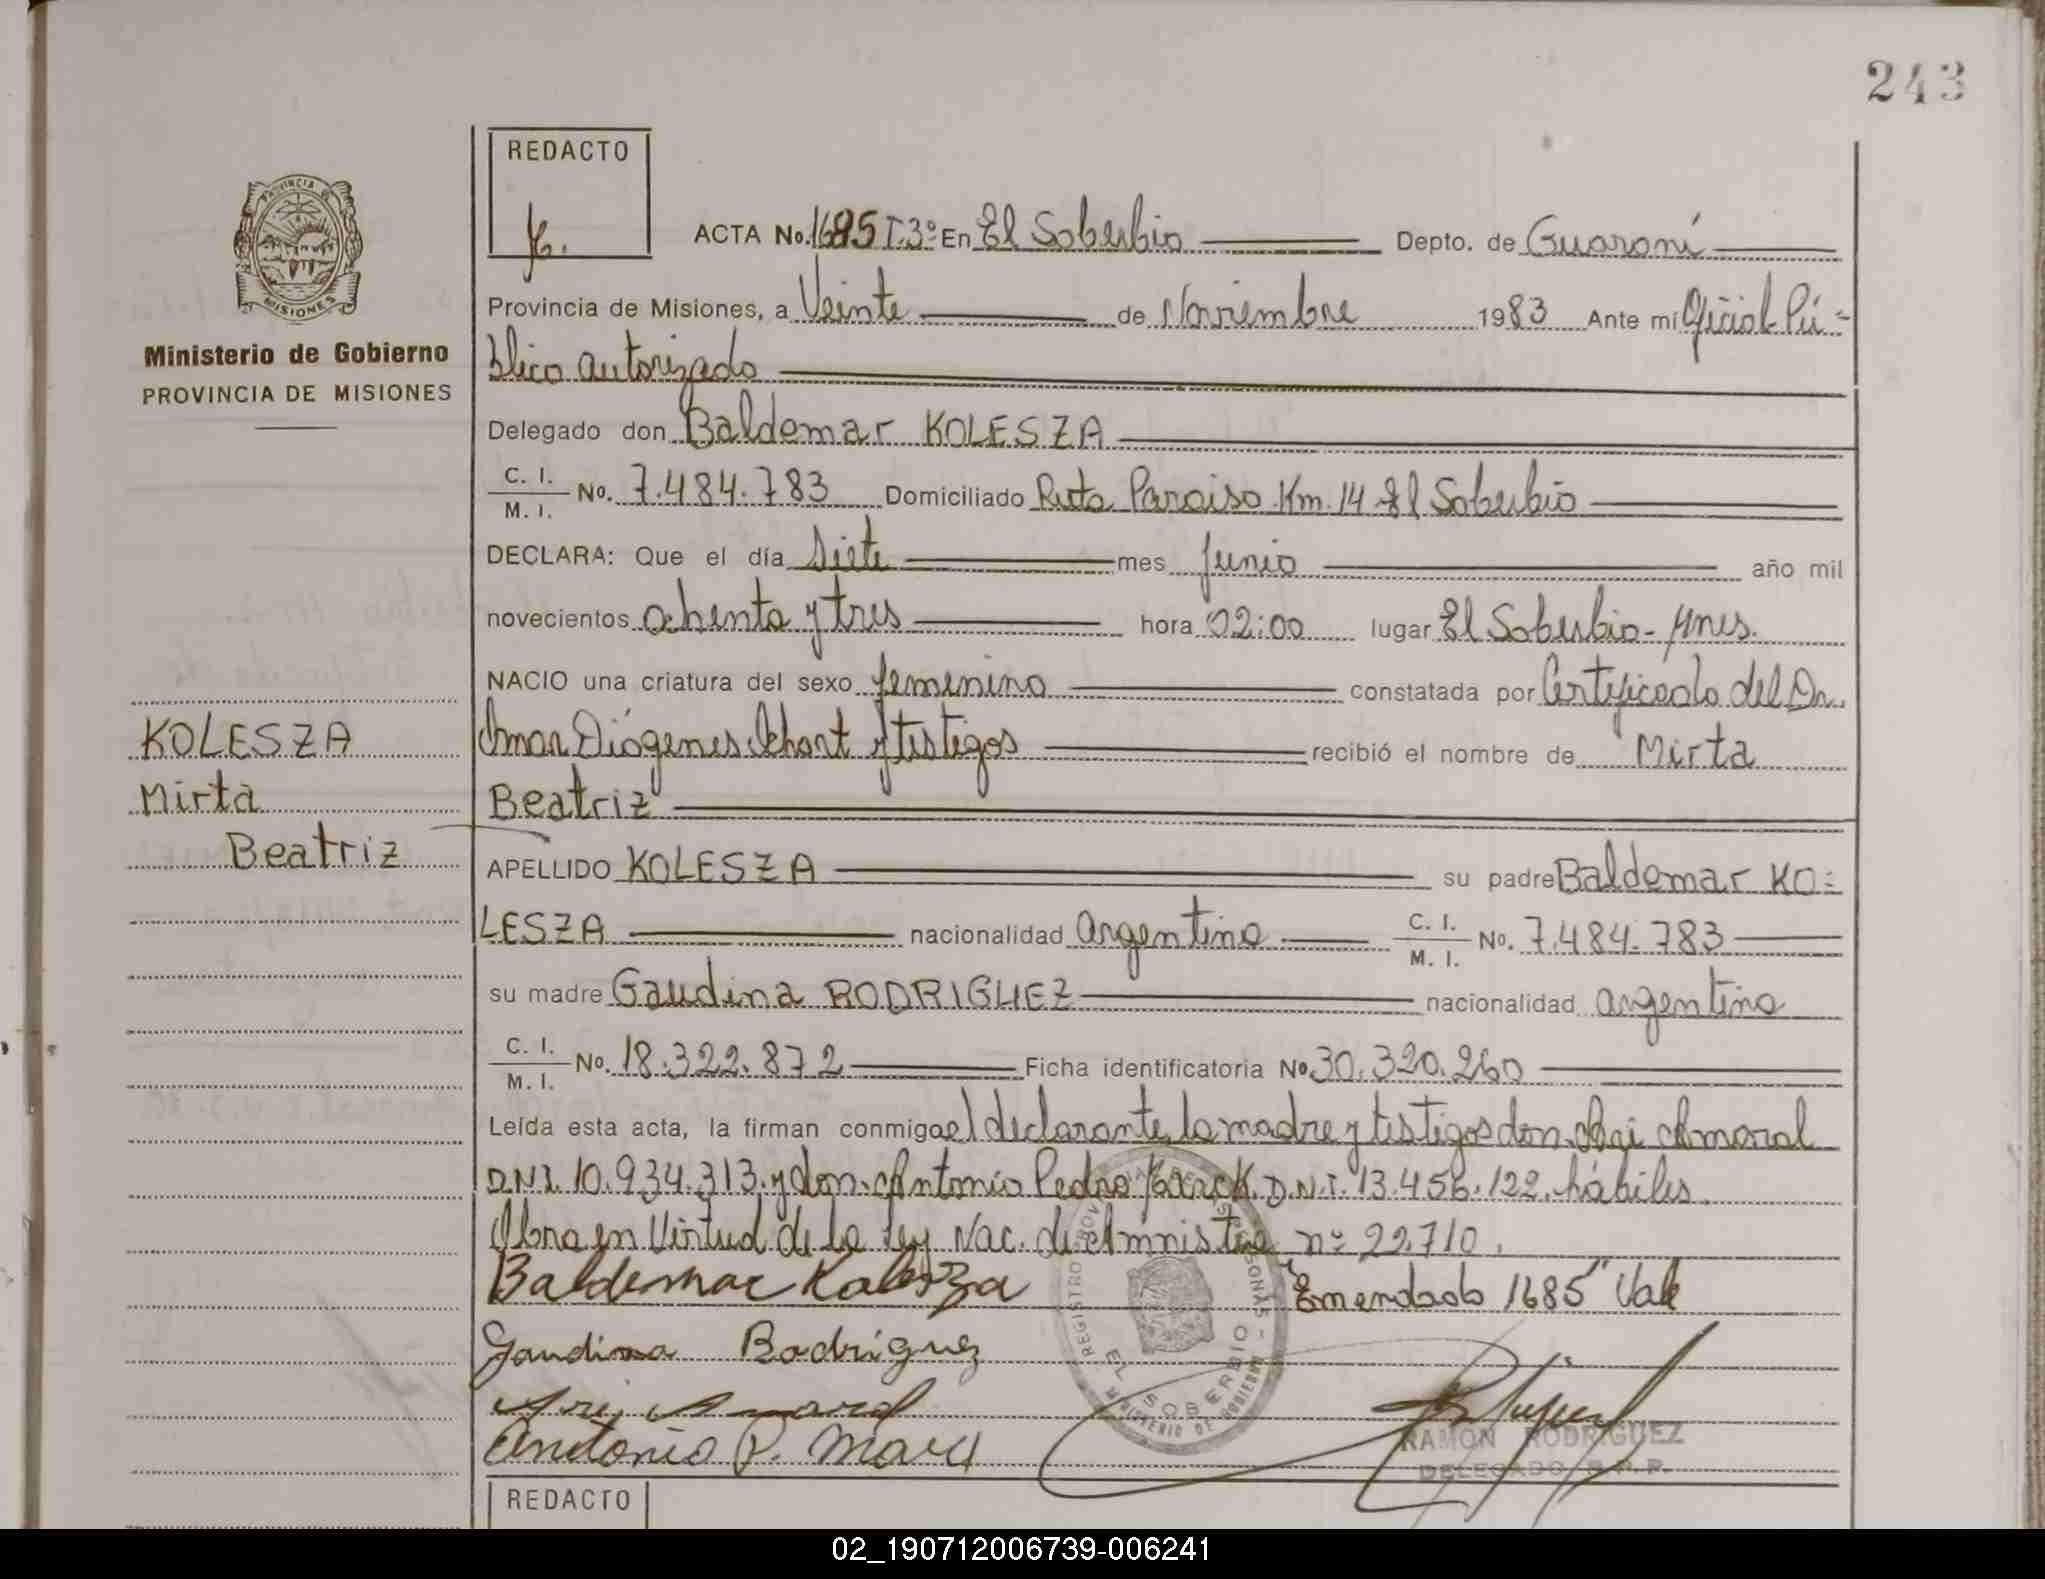 243
REDACTO
ACTA No. 1685 T.3º En El Soberbio Depto. de Guaraní
PROVINCIA
MISIONES
Provincia de Misiones, a Veinte de Noviembre 1983 Ante mi Oficial Pú=
Ministerio de Gobierno
PROVINCIA DE MISIONES
blico autorizado
Delegado don Baldemar KOLESZA
C. I.
M. I. No. 7.484.783 Domiciliado Ruta Paraiso Km. 14 El Soberbio
DECLARA: Que el día Siete mes Junio año mil
novecientos ochenta y tres hora 02:00 lugar El Soberbio - Mnes.
NACIO una criatura del sexo femenino constatada por Certificado del Dr.
Diógenes y testigos recibió el nombre de Mirta
KOLESZA
Mirta
Beatriz
Beatriz
APELLIDO KOLESZA su padre Baldemar KO=
LESZA nacionalidad argentina C. I.
M. I. No. 7.484.783
su madre Gaudina RODRIGUEZ nacionalidad argentina
C. I.
M. I. No. 18.322.872 Ficha identificatoria No 30.320.260
Leída esta acta, la firman conmigo el declarante, la madre y testigos don Amaral
D.N.I. 10.934.313 y don Antonio Pedro D.N.I. 13.456.122, hábiles.
Obra en Virtud de la Ley Nac. de Amnistia nº 22.710.
Baldemar Kolesza
Emendado 1685 Vale
Gaudina Rodriguez
Antonio P.
EL SOBERBIO
MINISTERIO DE GOBIERNO
RAMON RODRIGUEZ
DELEGADO R.P.P.
REDACTO
02_190712006739-006241